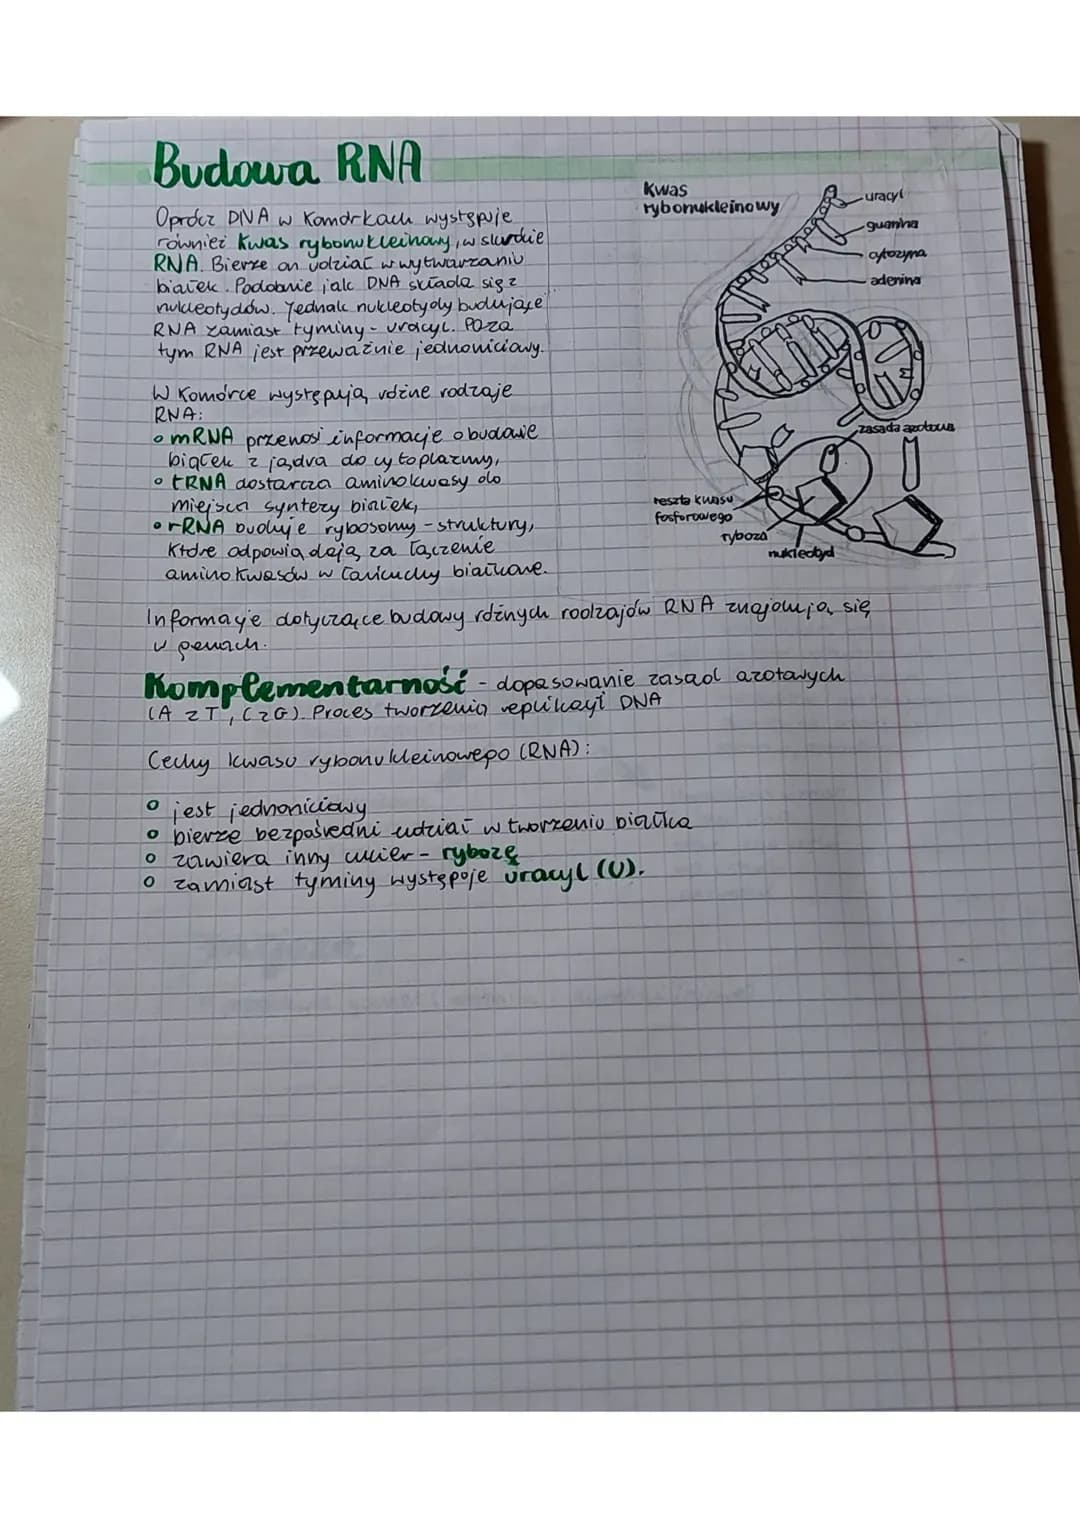 Budowa RNA
Oprócz DNA w komórkach występuje
również kwas rybonukleinowy, w skrócie
RNA. Bierze on udział w wytwarzaniu
białek. Podobnie jak DNA składa się z
nukleotydów. Jednak nukleotydy budujące
RNA zamiast tyminy - uracyl. Poza
tym RNA jest przeważnie jednoniciowy.
W komórce występują różne rodzaje
RNA:
mRNA przenosi informacje o budowie
białek z jądra do cytoplazmy,
tRNA dostarcza aminokwasy do
miejsca syntezy białek,
rRNA buduje rybosomy - struktury,
które odpowiadają za łączenie
aminokwasów w łańcuchy białkowe.
Kwas
rybonukleinowy
uracyl
guanina
cytozyna
adenina
zasada azotowa
reszta kwasu
fosforowego
ryboza
nukleotyd
Informacje dotyczące budowy różnych rodzajów RNA znajdują się
w genach.
Komplementarność - dopasowanie zasad azotowych
(A z T, C z G). Proces tworzenia replikacji DNA
Cechy kwasu rybonukleinowego (RNA):
jest jednoniciowy
bierze bezpośredni udział w tworzeniu białka
zawiera inny cukier - rybozę
zamiast tyminy występuje uracyl (U).